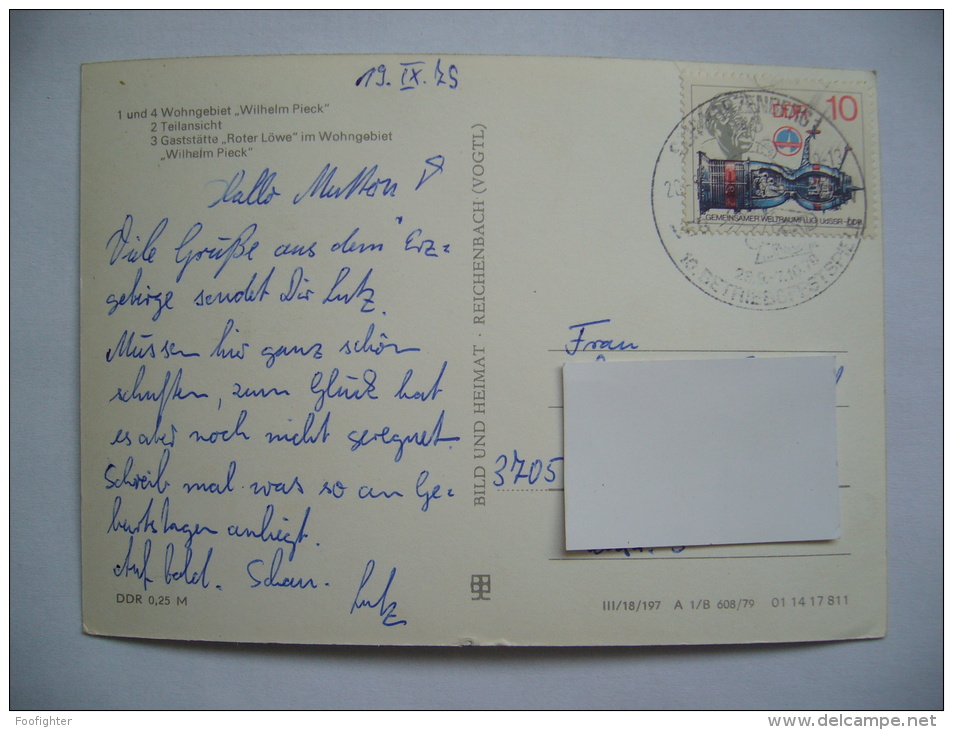 19. IX. 79
1 und 4 Wohngebiet „Wilhelm Pieck"
2 Teilansicht
3 Gaststätte „Roter Löwe" im Wohngebiet
„Wilhelm Pieck"
Hallo
Viele Grüße aus dem Erz=
gebirge sendet Dir Lutz.
Müssen hier ganz schön
schuften, zum Glück hat
es aber noch nicht geregnet.
Schreib mal was so an Ge=
burtstagen anliegt.
Auf bald. Lutz
DDR 0,25 M
BILD UND HEIMAT · REICHENBACH (VOGTL)
DDR 10
GEMEINSAMER WELTRAUMFLUG UdSSR-DDR
SCHWARZENBERG
16. BETRIEBSFESTSPIE
Frau
3705
III/18/197 A 1/B 608/79 01 14 17 811
Foofighter
www.delcampe.net